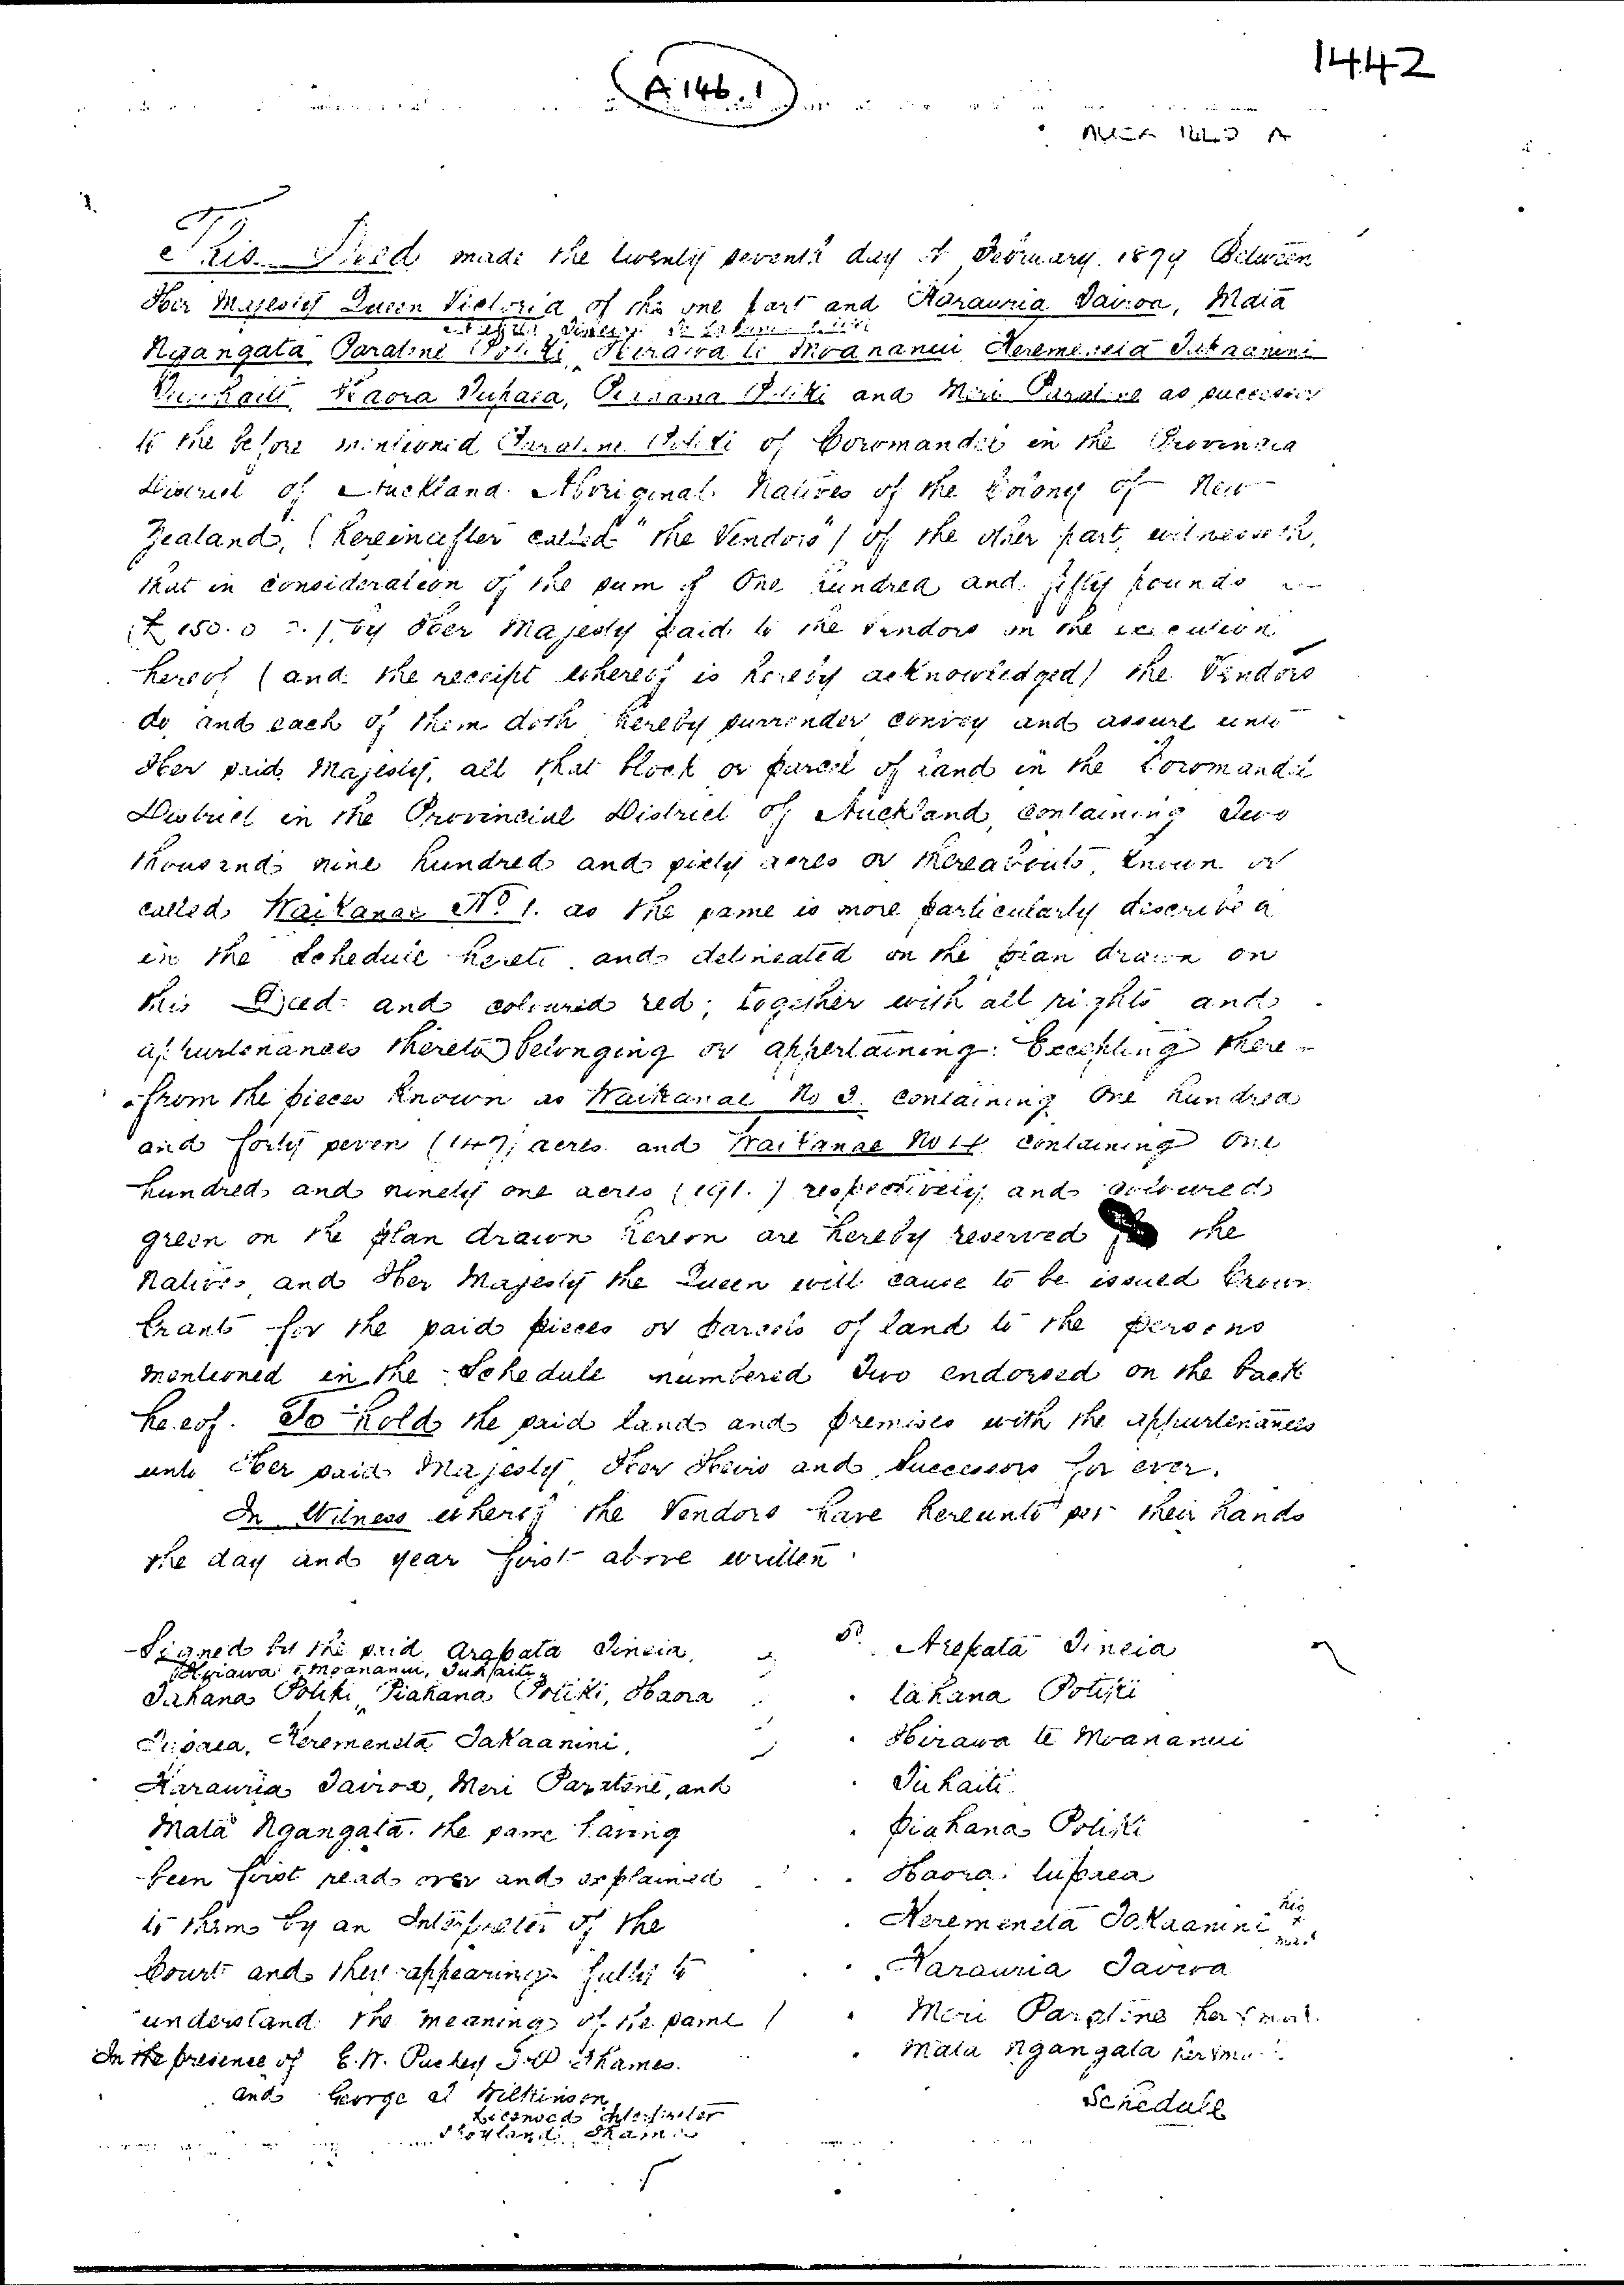 1442
A 146.1
This Deed made the twenty seventh day of February 1879 Between
Her Majesty Queen Victoria of the one part and Karauria Tairoa, Mata
Ngangata Paratene Potiki, Hirawa te Moananui Keremeneta Takaanini
Tuhaiti, Haora Tupaea, Piahana Potiki and Meri Paratene as successor
to the before mentioned Paratene Potiki of Coromandel in the Provincial
District of Auckland Aboriginal Natives of the Colony of New
Zealand, (hereinafter called "the Vendors") of the other part, witnesseth,
that in consideration of the sum of One hundred and fifty pounds
(£150.0 by Her Majesty paid to the Vendors on the execution
hereof (and the receipt whereof is hereby acknowledged) the Vendors
do and each of them doth hereby surrender convey and assure unto
Her said Majesty, all that block or parcel of land in the Coromandel
District in the Provincial District of Auckland, containing Two
thousand nine hundred and sixty acres or thereabouts, known or
called Waikanae No 1. as the same is more particularly described
in the Schedule hereto and delineated on the plan drawn on
this Deed and coloured red; together with all rights and
appurtenances thereto belonging or appertaining: Excepting there-
from the pieces known as Waikanae No 3. containing One hundred
and forty seven (147) acres and Waikanae No 4 containing One
hundred and ninety one acres (191.) respectively and coloured
green on the plan drawn hereon are hereby reserved the
Natives and Her Majesty the Queen will cause to be issued Crown
Grants for the said pieces or parcels of land to the persons
mentioned in the Schedule numbered Two endorsed on the back
hereof. To hold the said land and premises with the appurtenances
unto Her said Majesty Her Heirs and Successors for ever.
In Witness whereof the Vendors have hereunto set their hands
the day and year first above written.
Signed by the said Arapata Tineia,
Hirawa te Moananui, Tuhaiti,
Tahana Potiki, Piahana Potiki, Haora
Tupaea, Keremeneta Takaanini,
Karauria Tairoa, Meri Paratene, and
Mata Ngangata. the same having
been first read over and explained
to them by an Interpreter of the
Court and they appearing fully to
understand the meaning of the same
In the presence of E. W. Puckey Thames.
and George Wilkinson
Licensed Interpreter
Shortland Thames
Arepata Tineia
tahana Potiki
Hirawa te Moananui
Tuhaiti
piahana Potiki
Haora tupaea
Keremeneta Takaanini his x mark
Karauria Tavroa
Meri Paratene her x mark
Mata Ngangata her x mark
Schedule